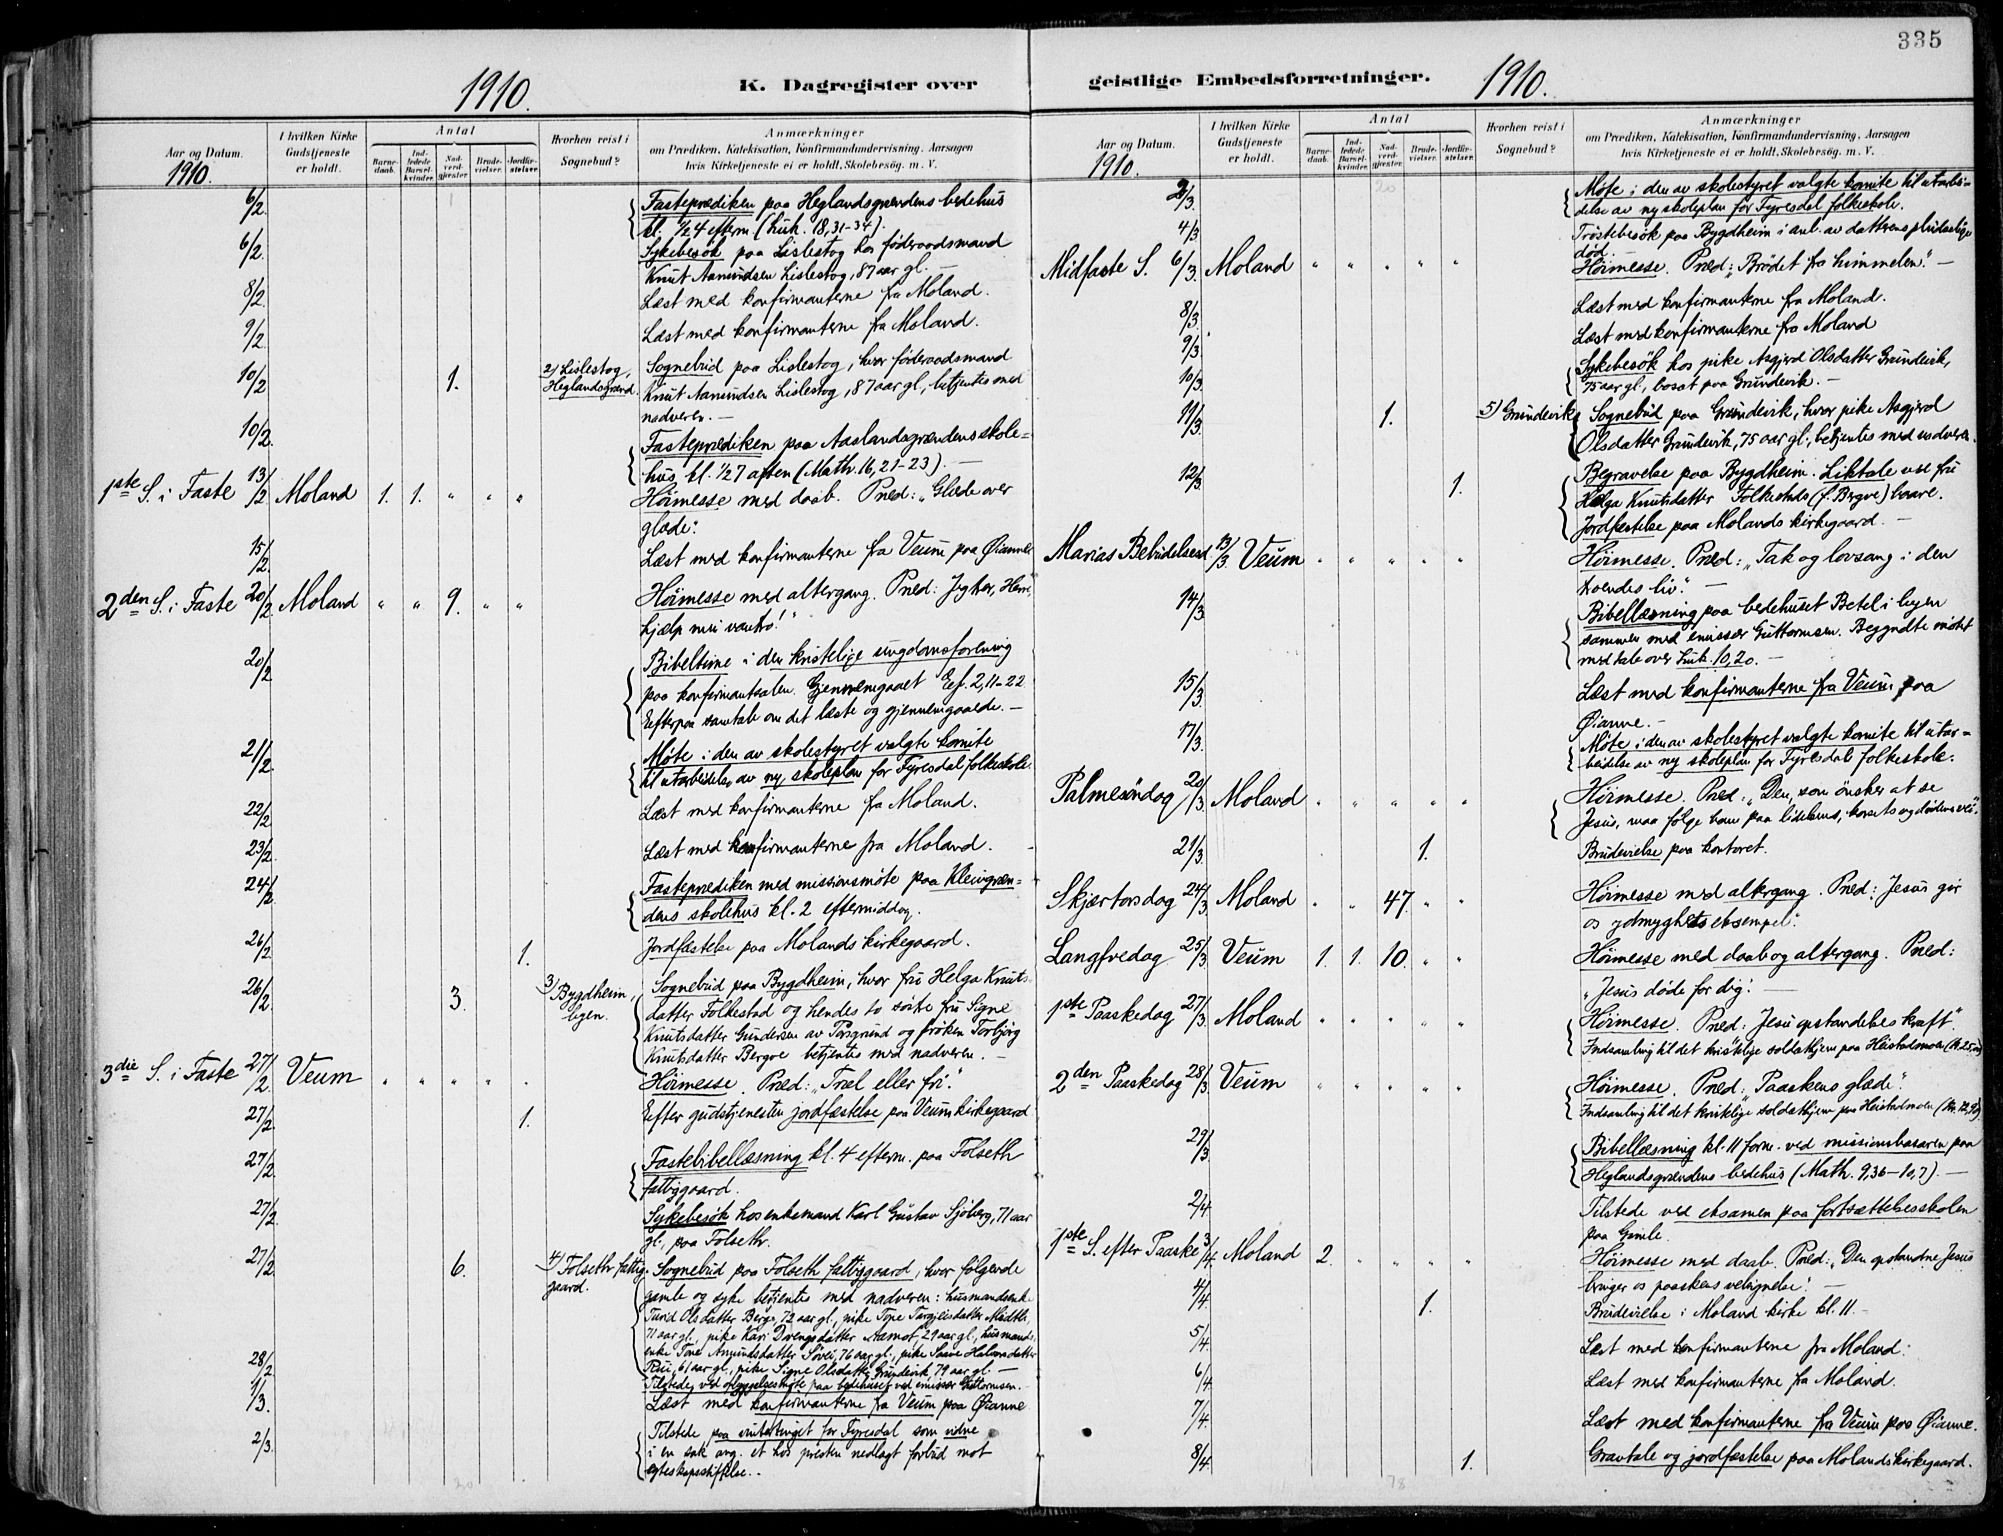 335
1910.
K. Dagregister over
geistlige Embedsforretninger.
1910.
Aar og Datum.
1910.
I hvilken Kirke
Gudstjeneste
er holdt.
Antal
Barne-
daab.
Ind-
ledede
Barsel-
kvinder.
Nad-
verd-
gjæster.
Brude-
vielser.
Jordfæ-
stelser.
Hvorhen reist i
Sognebud?
Anmærkninger
om Prædiken, Katekisation, Konfirmandundervisning, Aarsagen
hvis Kirketjeneste ei er holdt, Skolebesøg. m. V.
6/2. Fasteprædiken paa Heglandsgrændens bedehus
kl. 1/2 4 efterm. (Luk. 18,31-34).
6/2. Sykebesøk paa Lislestog hos føderaadsmand
Knut Aamundsen Lislestog, 87 aar gl. —
8/2. Læst med konfirmanterne fra Moland.
9/2. Læst med konfirmanterne fra Moland.
10/2 1. 2) Lislestog, Sognebud paa Lislestog, hvor føderaadsmand
Heglandsgrænd. Knut Aamundsen Lislestog, 87 aar gl., betjentes med
nadveren. —
10/2. Fasteprædiken paa Aaslandsgrændens skole=
hus kl. 1/2 7 aften (Math. 16, 21-23). —
1ste S. i Faste 13/2 Moland 1. 1. " " " Høimesse med daab. Præd: „Glæde over
glæde".
15/2. Læst med konfirmanterne fra Veum paa Øianne
2den S. i Faste 20/2 Moland " " 9. " " Høimesse med altergang. Præd: Jeg tror, Herre,
hjælp min vantro!"
20/2 Bibeltime i den kristelige ungdomsforening
paa konfirmantsalen. Gjennemgaaet Ef. 2, 11-22
Efterpaa samtale om det læste og gjennemgaaede. —
21/2. Møte i den av skolestyret valgte komite
til utarbeidelse av ny skoleplan for Fyresdal folkeskole.
22/2 Læst med konfirmanterne fra Moland.
23/2. Læst med konfirmanterne fra Moland.
24/2. Fasteprædiken med missionsmøte paa Kleivgræn=
dens skolehus kl. 2 eftermiddag.
26/2. 1. Jordfæstelse paa Molands kirkegaard.
26/2. 3. 3) Bygdheim, Sognebud paa Bygdheim, hvor fru Helga Knuts-
datter Folkestad og hendes to søstre fru Signe
Knutsdatter Gundersen av Porsgrund og frøken Torbjørg
Knutsdatter Bergve betjentes med nadveren. —
3die S. i Faste 27/2 Veum " " " " " Høimesse. Præd: „Træl eller fri".
27/2. 1. Efter gudstjenesten jordfæstelse paa Veum kirkegaard
27/2. Fastebibellæsning kl. 4 efterm. paa Folseth
fattiggaard.
27/2. Sykebesøk hos enkemand Karl Gustav Sjøberg, 71 aar
gl., paa Folseth.
27/2. 6. 4) Folseth fattig- Sognebud paa Folseth fattiggaard, hvor følgende
gaard. gamle og syke betjentes med nadveren: husmandsenke
Turid Olsdatter Berge, 72 aar gl., pike Tone Targjeisdatter
71 aar gl., pike Kari Drengsdatter Aamot, 29 aar gl., husmands
enke Tone Amundsdatter 76 aar gl., pike
61 aar gl., pike Signe Olsdatter Grundevik, 79 aar gl. —
28/2 Tilstede ved paa bedehuset ved emissær Guttormsen.
1/3. Læst med konfirmanterne fra Veum paa Øianne
2/3. Tilstede paa vintertinget for Fyresdal som vidne
i en sak ang. et hos presten nedlagt forbud mot
egteskapsstiftelse. -
Aar og Datum.
1910.
I hvilken Kirke
Gudstjeneste
er holdt.
Antal
Barne-
daab.
Ind-
ledede
Barsel-
kvinder.
Nad-
verd-
gjæster.
Brude-
vielser.
Jordfæ-
stelser.
Hvorhen reist i
Sognebud?
Anmærkninger
om Prædiken, Katekisation, Konfirmandundervisning, Aarsagen
hvis Kirketjeneste ei er holdt, Skolebesøg. m. V.
20
2/3. Møte i den av skolestyret valgte komite til utarbei=
delse av ny skoleplan for Fyresdal folkeskole.
4/3. Trøstebesøk paa Bygdheim i anl. av datterens pludselige
død.
Midfaste S. 6/3. Moland " " " " " Høimesse. Præd: „Brødet fra himmelen". —
8/3. Læst med konfirmanterne fra Moland.
9/3. Læst med konfirmanterne fra Moland
10/3. Sykebesøk hos pike Asgjerd Olsdatter Grundevik,
75 aar gl., bosat paa Grundevik. —
11/3. 1. 5) Grundevik Sognebud paa Grundevik, hvor pike Asgjerd
Olsdatter Grundevik, 75 aar gl., betjentes med nadveren.
12/3. 1. Begravelse paa Bygdheim. Liktale ved fru
Helga Knutsdatter Folkestads (f. Bergve) baare.
Jordfæstelse paa Molands kirkegaard. —
Marias Bebudelsesd. 13/3 Veum " " " " " Høimesse. Præd: „Tak og lovsang i den
troendes liv". —
14/3. Bibellæsning paa bedehuset Betel i
sammen med emissær Guttormsen. Begyndte møtet
med tale over Luk. 10, 20. —
15/3. Læst med konfirmanterne fra Veum paa
Øianne. —
17/3. Møte i den av skolestyret valgte komite til utar=
beidelse av ny skoleplan for Fyresdals folkeskole.
Palmesøndag 20/3 Moland " " " " " Høimesse. Præd: „Den, som ønsker at se
Jesus, maa følge ham paa lidelsens, korsets og dødens vei".
21/3. 1. Brudevielse paa kontoret.
Skjærtorsdag 24/3 Moland " " 47. " " Høimesse med altergang. Præd: Jesus gir
os ydmyghets eksempel".
Langfredag 25/3 Veum 1. 1. 10. " " Høimesse med daab og altergang. Præd:
„Jesus døde for dig". —
1ste Paaskedag 27/3. Moland " " " " " Høimesse. Præd: „Jesu opstandelses kraft".
Indsamling til det kristelige soldathjem paa Heistadmoen
2den Paaskedag 28/3 Veum " " " " " Høimesse. Præd: „Paaskens glæde".
Indsamling til det kristelige soldathjem paa Heistadmoen
29/3. Bibellæsning kl. 11 form. ved missionsbasaren paa
Heglandsgrændens bedehus (Math. 9,36-10,7). —
2/4 Tilstede ved eksamen paa fortsættelsesskolen
paa Gimle.
1ste S. efter Paaske 3/4. Moland 2. " " " " Høimesse med daab. Præd: „Den opstandne Jesus
bringer os paaskens velsignelse". —
4/4. 1. Brudevielse i Moland kirke kl. 11. -
5/4. Læst med konfirmanterne fra Moland.
6/4. Læst med konfirmanterne fra Moland.
7/4. Læst med konfirmanterne fra Veum paa Øianne.
8/4. 1. Gravtale og jordfæstelse paa Molands kirkegaard.
78